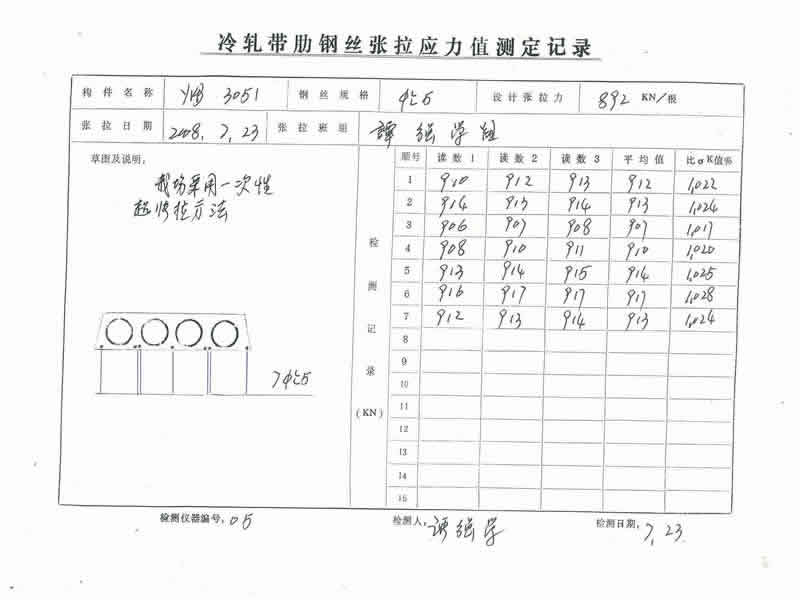 冷轧带肋钢丝张拉应力值测定记录
构件名称 YKB 3051 钢丝规格 φb5 设计张拉力 892 KN/根
张拉日期 2008.7.23 张拉班组 谭强学组
草图及说明: 顺号 读数1 读数2 读数3 平均值 比σK值%
我场采用一次性
超张拉方法
1 910 912 913 912 1.022
2 914 913 914 913 1.024
3 906 907 908 907 1.017
4 908 910 911 910 1.020
5 913 914 915 914 1.025
6 916 917 917 917 1.028
7 912 913 914 913 1.024
8
9
10
11
12
13
14
15
检测记录
(KN)
7φb5
检测仪器编号: 05 检测人: 谭强学 检测日期: 7.23